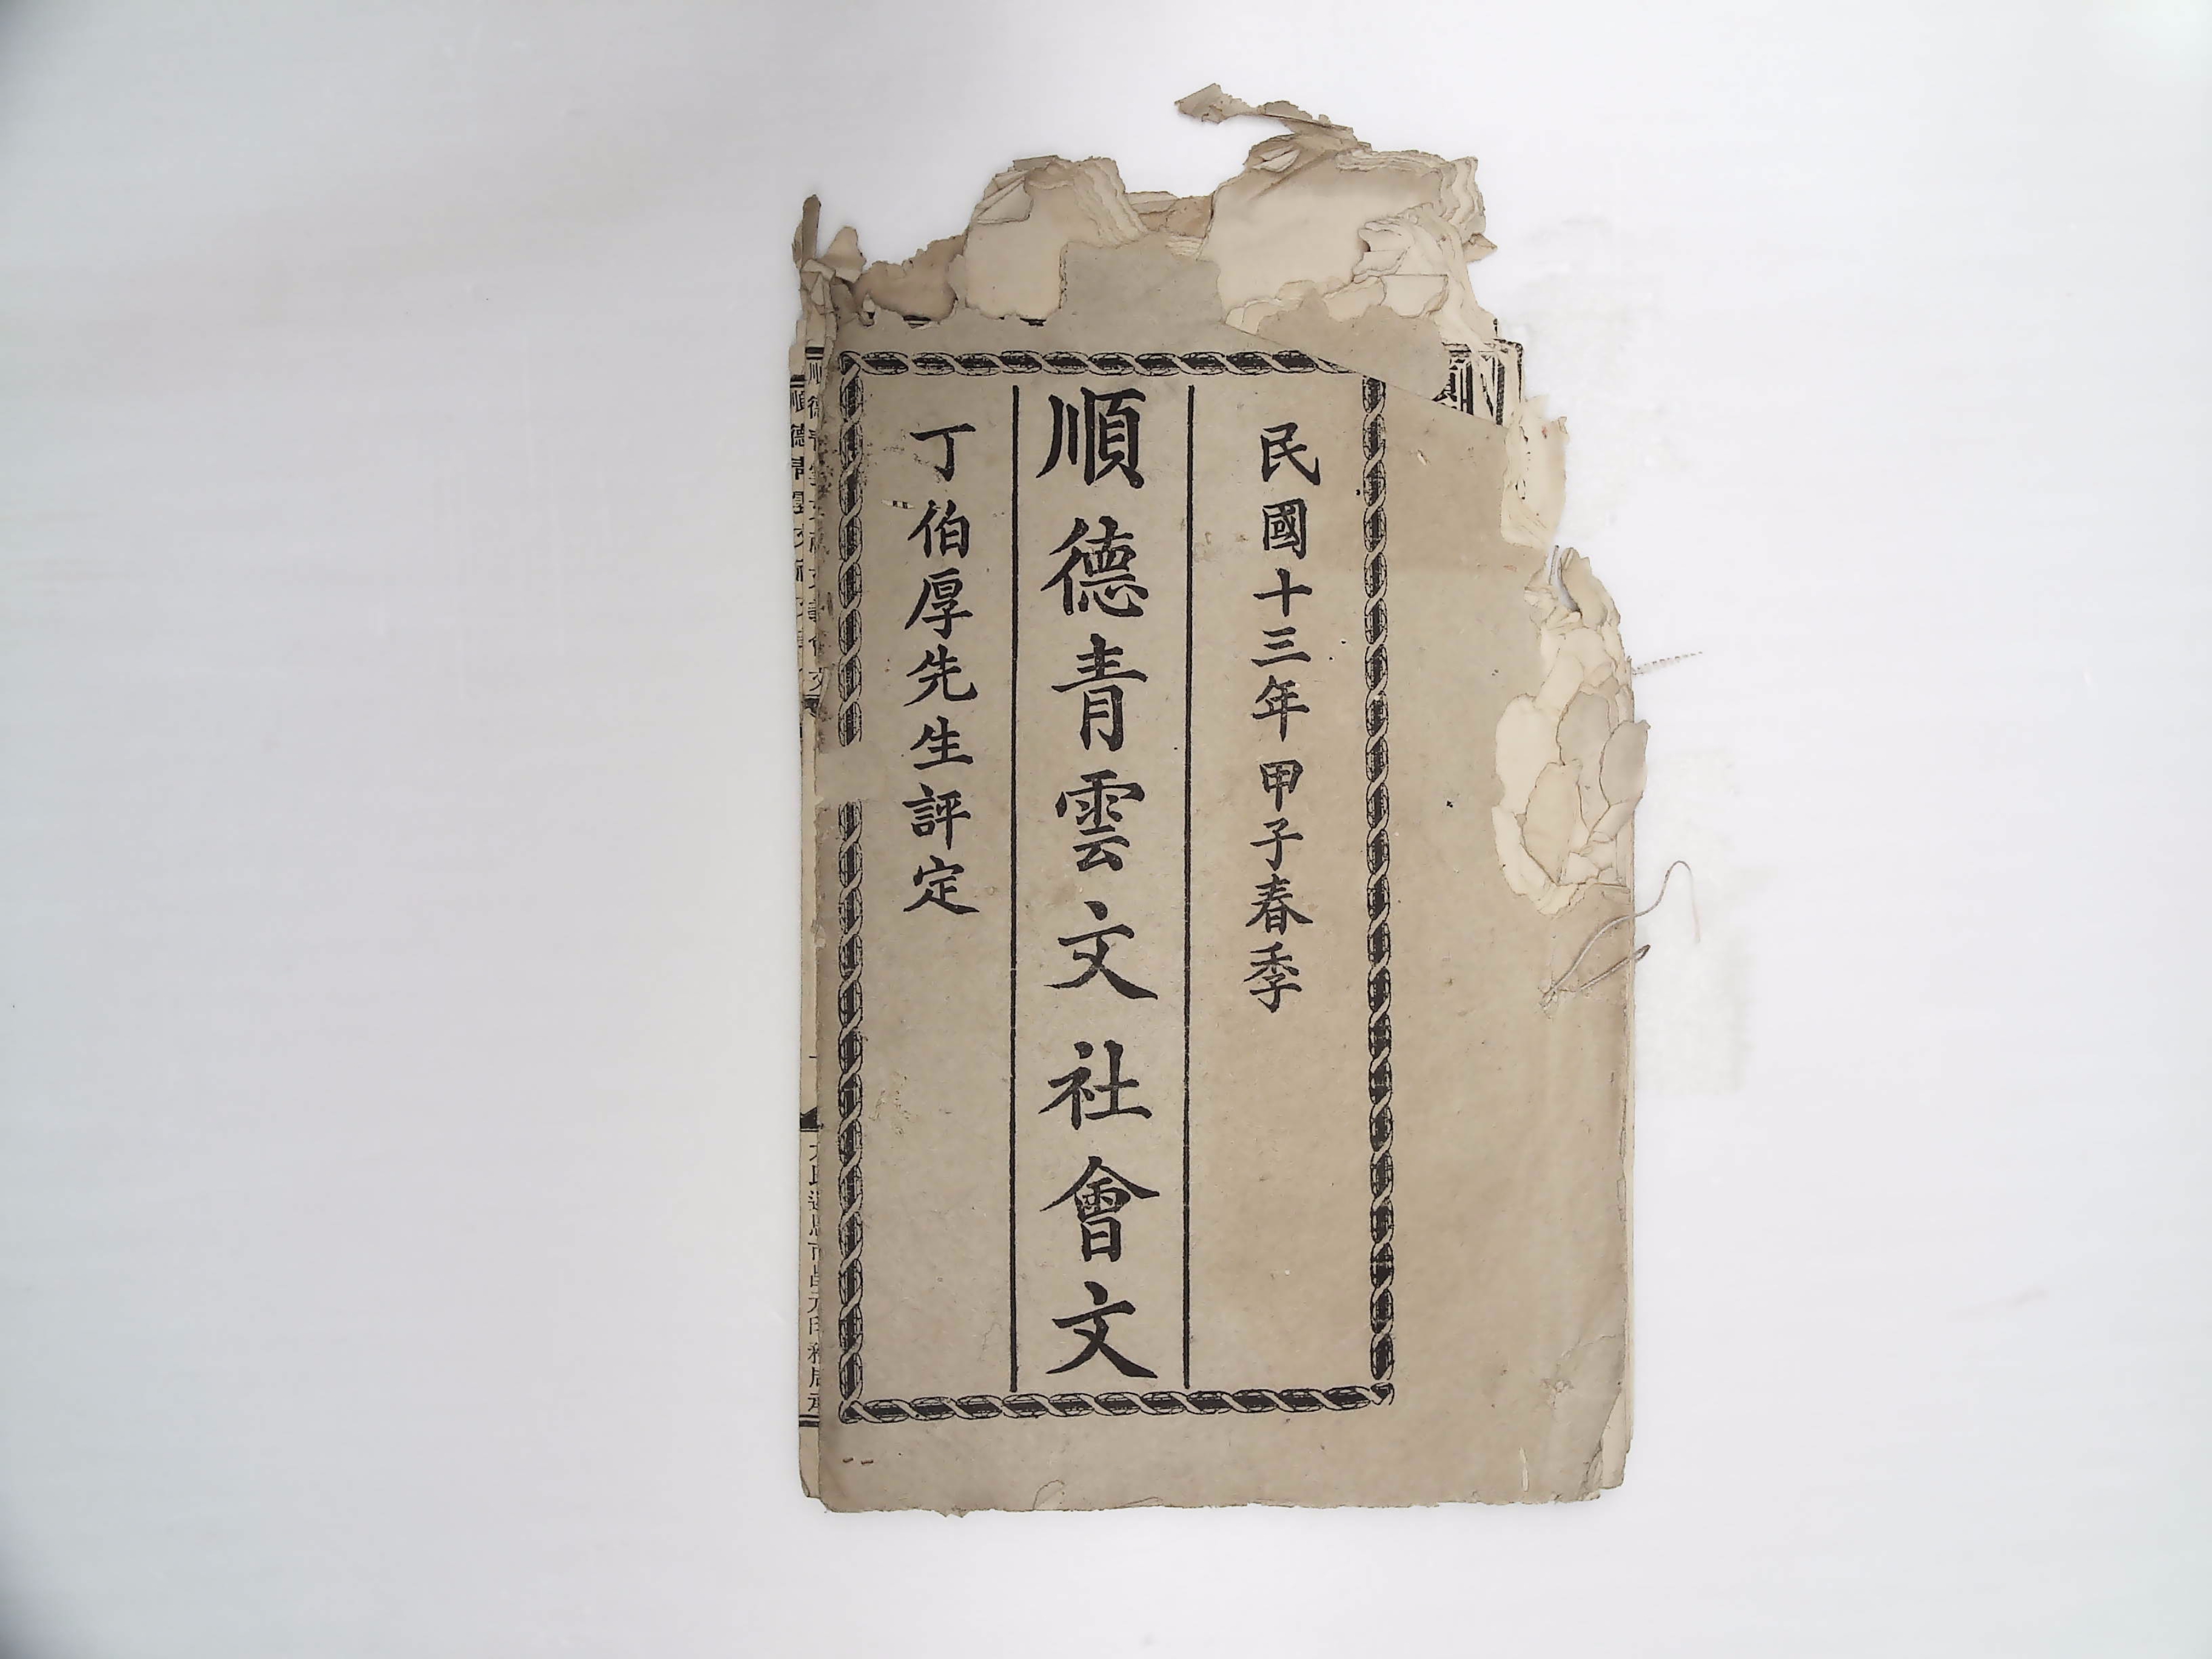 民國十三年甲子春季
順德青雲文社會文
丁伯厚先生評定